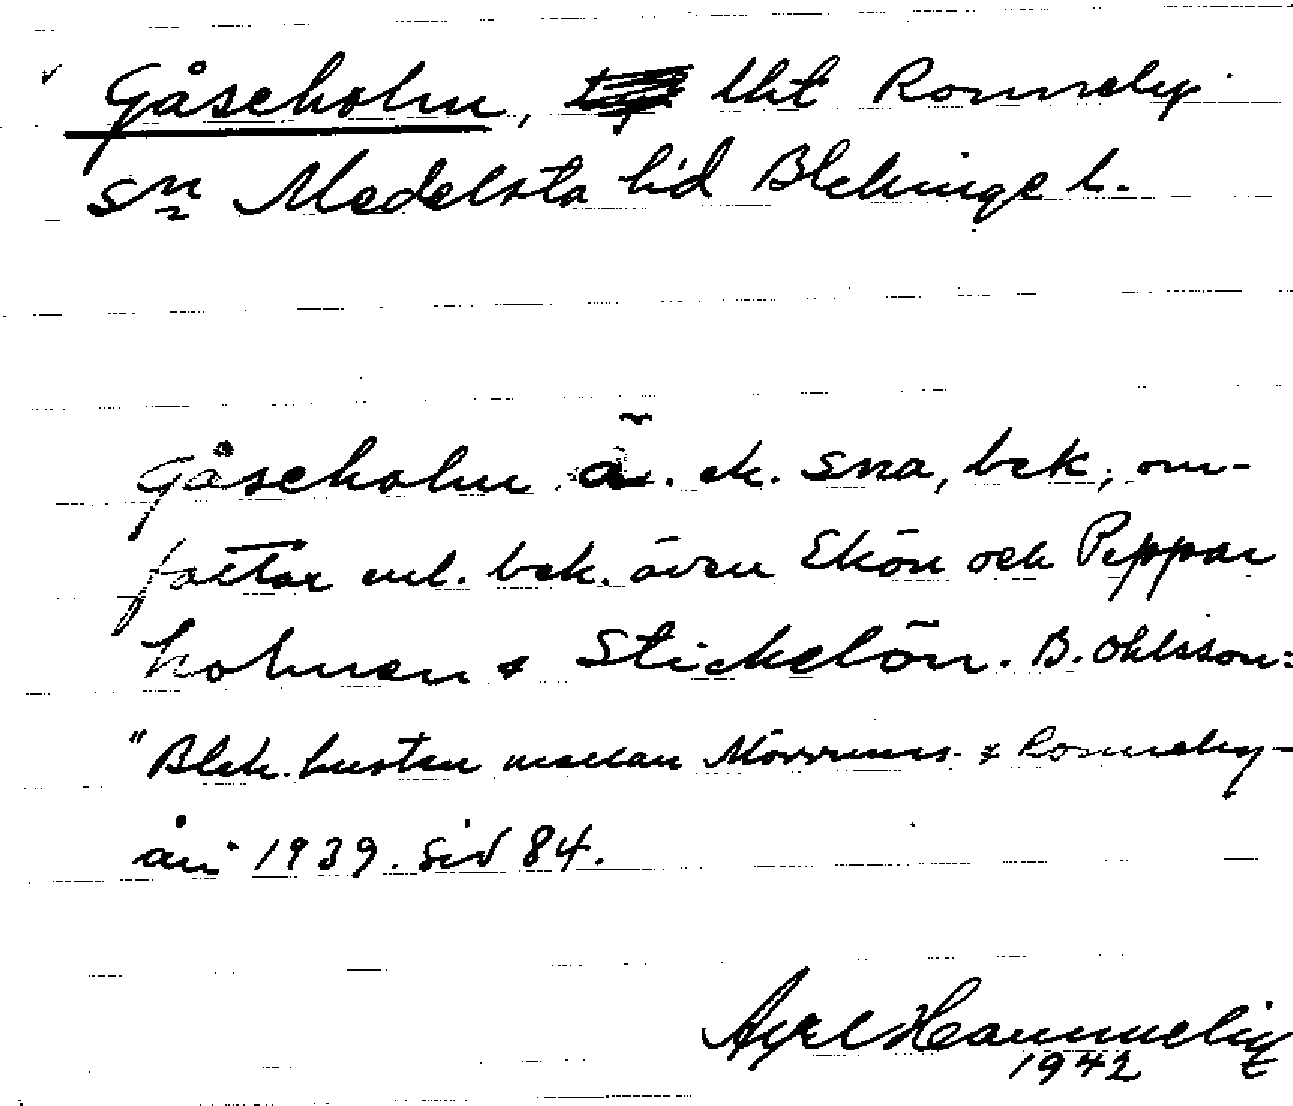 Gåseholm, tht Ronneby
sn Medelsta hd Blekinge l.
Gåseholm ä. ek. sna, bek, om-
fattar enl. bek. även Ekön och Peppar
holmen & Stickelön. B. Ohlsson:
"Blek. kusten mellan Mörrums- & Ronneby-
ån" 1939. sid 84.
Axel
1942